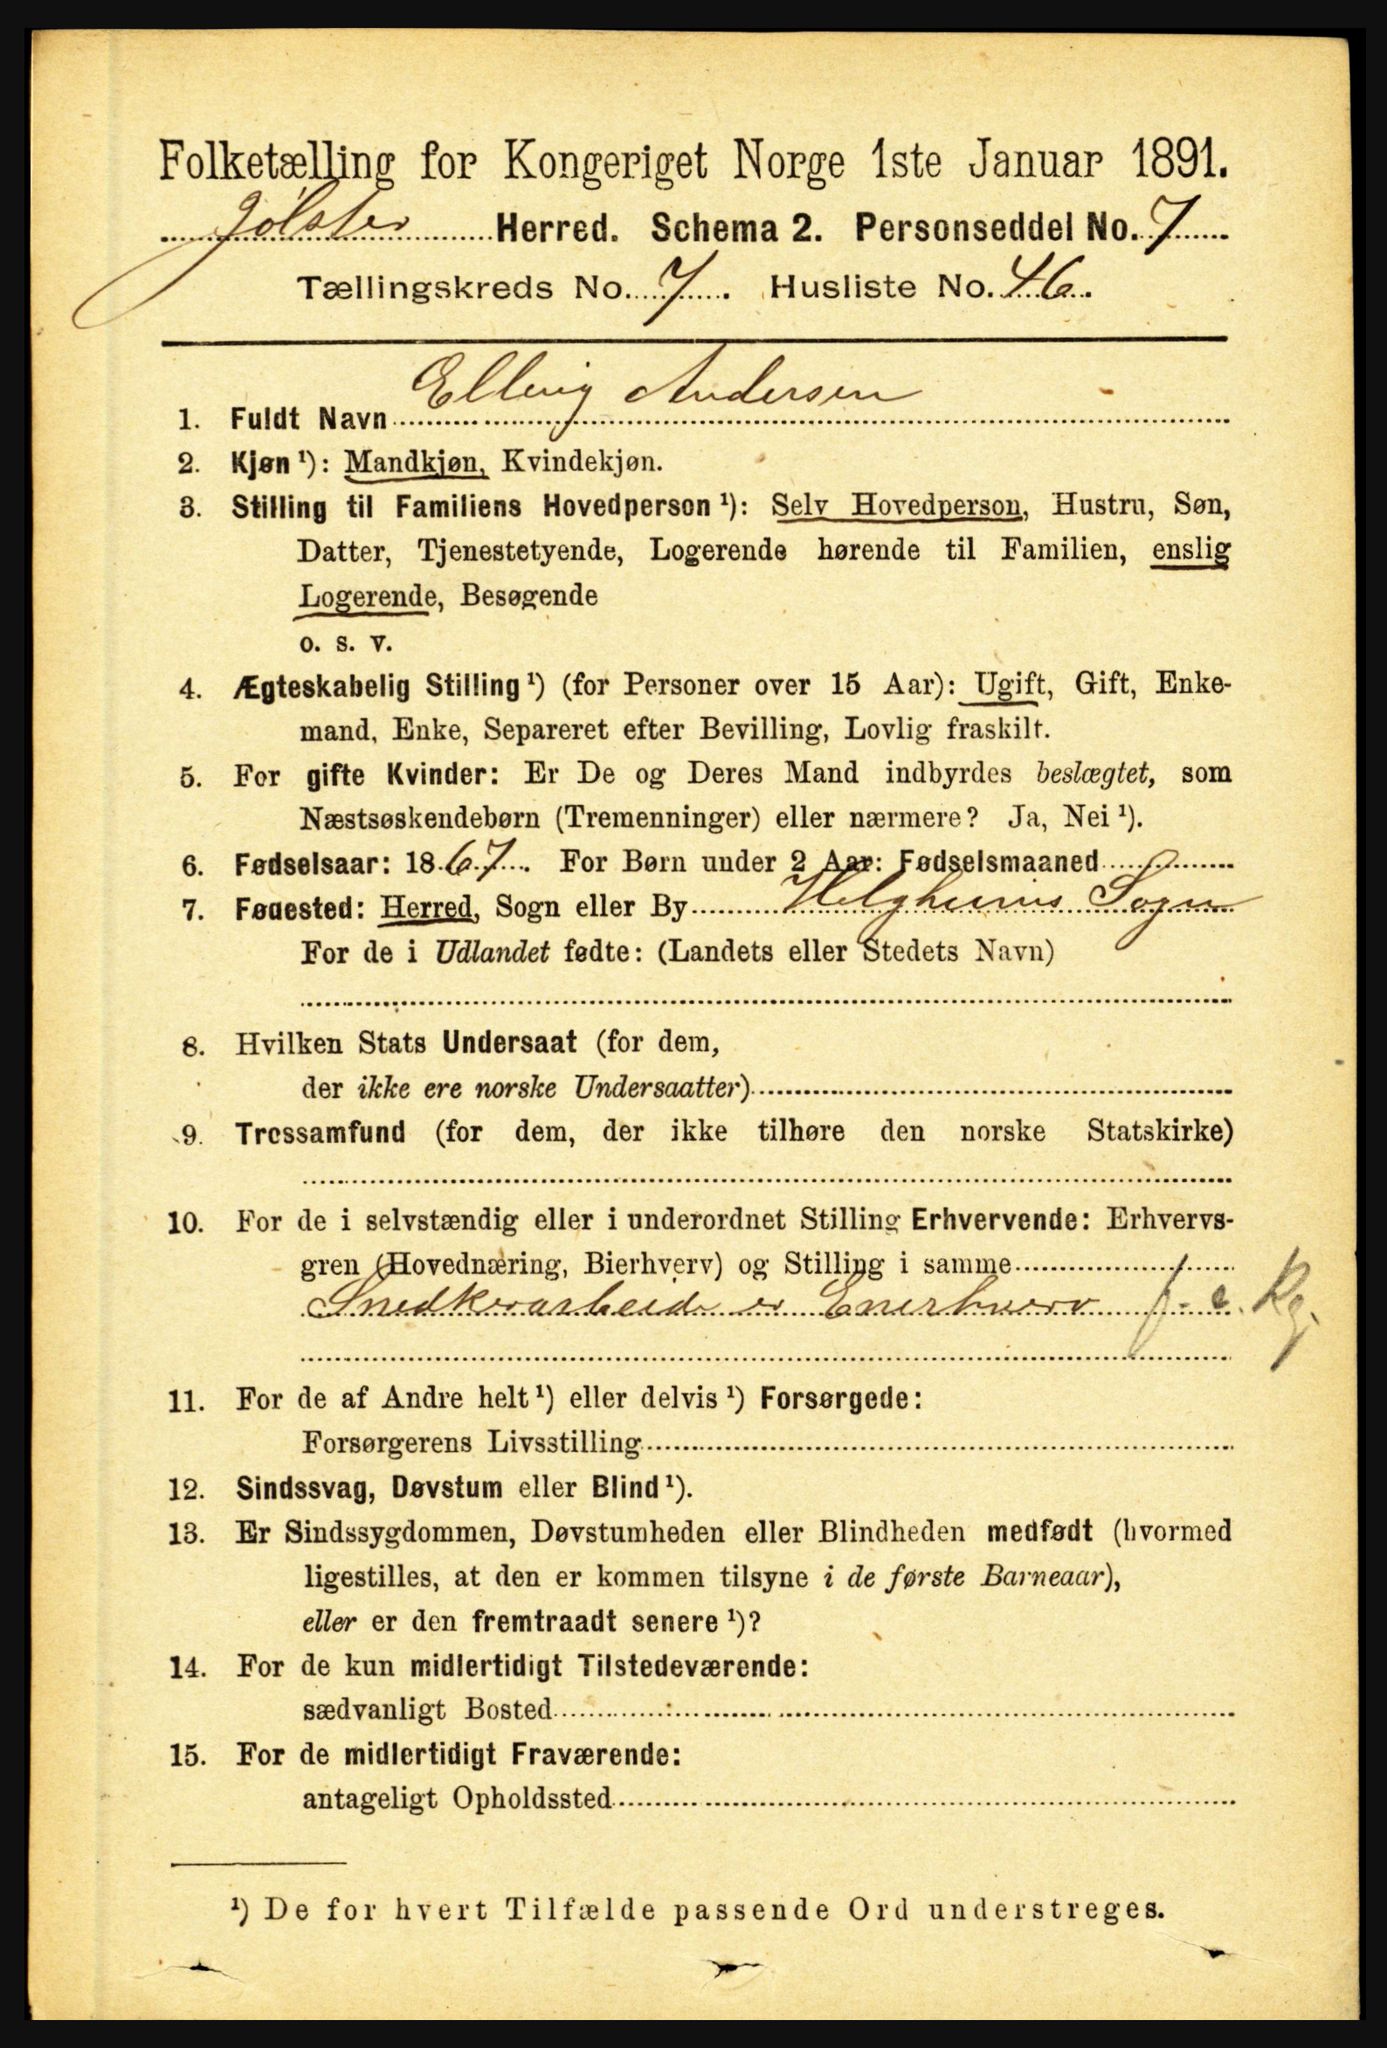 Folketælling for Kongeriget Norge 1ste Januar 1891.
Jølster Herred. Schema 2. Personseddel No. 7
Tællingskreds No. 7. Husliste No. 46.
1. Fuldt Navn Elling Andersen
2. Kjøn ¹): Mandkjøn, Kvindekjøn.
3. Stilling til Familiens Hovedperson ¹): Selv Hovedperson, Hustru, Søn,
Datter, Tjenestetyende, Logerende hørende til Familien, enslig
Logerende, Besøgende
o. s. v.
4. Ægteskabelig Stilling ¹) (for Personer over 15 Aar): Ugift, Gift, Enke-
mand, Enke, Separeret efter Bevilling, Lovlig fraskilt.
5. For gifte Kvinder: Er De og Deres Mand indbyrdes beslægtet, som
Næstsøskendebørn (Tremenninger) eller nærmere? Ja, Nei ¹).
6. Fødselsaar: 1867. For Børn under 2 Aar: Fødselsmaaned
7. Fødested: Herred, Sogn eller By Helgheims Sogn
For de i Udlandet fødte: (Landets eller Stedets Navn)
8. Hvilken Stats Undersaat (for dem,
der ikke ere norske Undersaatter)
9. Trossamfund (for dem, der ikke tilhøre den norske Statskirke)
10. For de i selvstændig eller i underordnet Stilling Erhvervende: Erhvervs-
gren (Hovednæring, Bierhverv) og Stilling i samme
Snedkerarbeide er Enerhverv f. e. Rg.
11. For de af Andre helt ¹) eller delvis ¹) Forsørgede:
Forsørgerens Livsstilling
12. Sindssvag, Døvstum eller Blind ¹).
13. Er Sindssygdommen, Døvstumheden eller Blindheden medfødt (hvormed
ligestilles, at den er kommen tilsyne i de første Barneaar),
eller er den fremtraadt senere ¹)?
14. For de kun midlertidigt Tilstedeværende:
sædvanligt Bosted
15. For de midlertidigt Fraværende:
antageligt Opholdssted
¹) De for hvert Tilfælde passende Ord understreges.